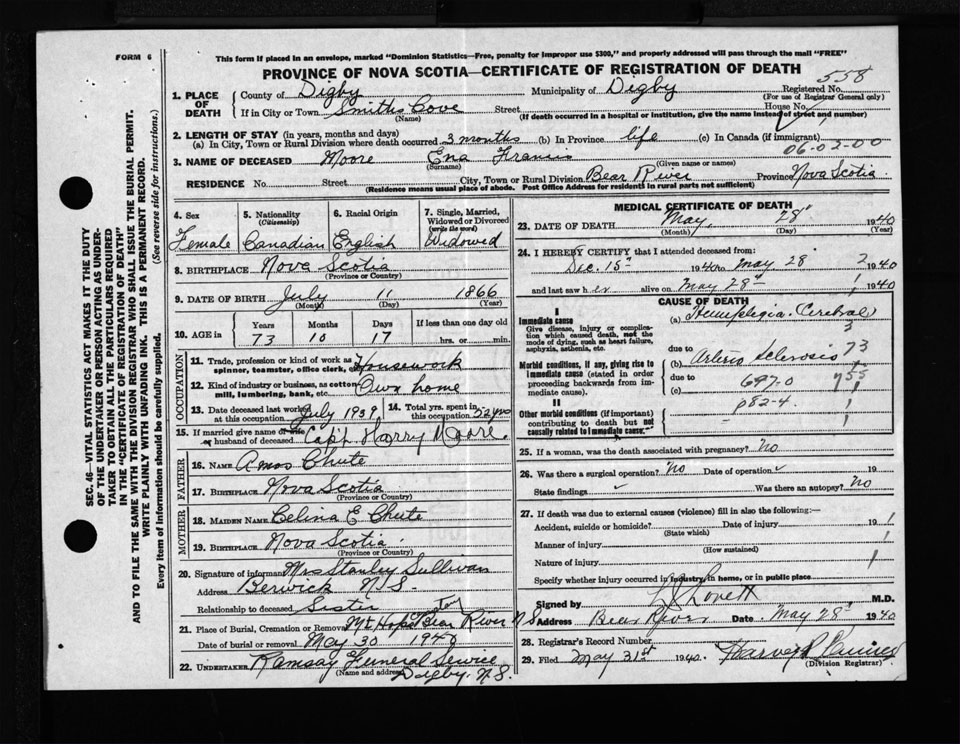 FORM 6
This form if placed in an envelope, marked "Dominion Statistics—Free, penalty for improper use $300," and properly addressed will pass through the mail "FREE"
PROVINCE OF NOVA SCOTIA—CERTIFICATE OF REGISTRATION OF DEATH
558
1. PLACE OF DEATH
County of Digby Municipality of Digby Registered No.
(For use of Registrar General only)
If in City or Town Smiths Cove Street House No.
(Name) (If death occurred in a hospital or institution, give the name instead of street and number)
2. LENGTH OF STAY (in years, months and days)
(a) In City, Town or Rural Division where death occurred 3 months (b) In Province life (c) In Canada (if immigrant)
06-02-00
3. NAME OF DECEASED Moore Ena Francis
(Surname) (Given name or names)
RESIDENCE No. Street City, Town or Rural Division Bear River Province Nova Scotia
(Residence means usual place of abode. Post Office Address for residents in rural parts not sufficient)
4. Sex Female
5. Nationality (Citizenship) Canadian
6. Racial Origin English
7. Single, Married, Widowed or Divorced (write the word) Widowed
8. BIRTHPLACE Nova Scotia
(Province or Country)
9. DATE OF BIRTH July 11 1866
(Month) (Day) (Year)
10. AGE in Years Months Days If less than one day old
73 10 17 hrs. or min.
OCCUPATION
11. Trade, profession or kind of work as spinner, teamster, office clerk, etc. Housework
12. Kind of industry or business, as cotton mill, lumbering, bank, etc. Own home
13. Date deceased last worked at this occupation July 1939
14. Total yrs. spent in this occupation 52 yrs
15. If married give name of wife or husband of deceased Capt Harry Moore
FATHER
16. NAME Amos Chute
17. BIRTHPLACE Nova Scotia
(Province or Country)
MOTHER
18. MAIDEN NAME Celina E Chute
19. BIRTHPLACE Nova Scotia
(Province or Country)
20. Signature of informant Mrs Stanley Sullivan
Address Berwick N.S.
Relationship to deceased Sister
21. Place of Burial, Cremation or Removal Mt Hope Bear River N.S
Date of burial or removal May 30 1940
22. UNDERTAKER Ramsay Funeral Service
(Name and address) Digby. N.S.
MEDICAL CERTIFICATE OF DEATH
23. DATE OF DEATH May 28 1940
(Month) (Day) (Year)
24. I HEREBY CERTIFY that I attended deceased from:
Dec. 15 1940 to May 28 1940
and last saw her alive on May 28 1940
CAUSE OF DEATH
I
Immediate cause
Give disease, injury or complication which caused death, not the mode of dying, such as heart failure, asphyxia, asthenia, etc.
(a) Hemiplegia - Cerebral
due to
Morbid conditions, if any, giving rise to immediate cause (stated in order proceeding backwards from immediate cause).
(b) Arterio Sclerosis 73
due to
(c) 697-0
II
082-4
Other morbid conditions (if important) contributing to death but not causally related to immediate cause.
25. If a woman, was the death associated with pregnancy? No
26. Was there a surgical operation? No Date of operation 19
State findings Was there an autopsy? No
27. If death was due to external causes (violence) fill in also the following:—
Accident, suicide or homicide? Date of injury 19
(State which)
Manner of injury
(How sustained)
Nature of injury
Specify whether injury occurred in industry, in home, or in public place
Signed by Lovett M.D.
Address Bear River Date May 28 1940
28. Registrar's Record Number
29. Filed May 31st 1940. Harvey
(Division Registrar)
SEC. 46—VITAL STATISTICS ACT MAKES IT THE DUTY
OF THE UNDERTAKER OR PERSON ACTING AS UNDER-
TAKER TO OBTAIN ALL THE PARTICULARS REQUIRED
IN THE "CERTIFICATE OF REGISTRATION OF DEATH"
AND TO FILE THE SAME WITH THE DIVISION REGISTRAR WHO SHALL ISSUE THE BURIAL PERMIT.
WRITE PLAINLY WITH UNFADING INK. THIS IS A PERMANENT RECORD.
Every item of Information should be carefully supplied. (See reverse side for instructions.)